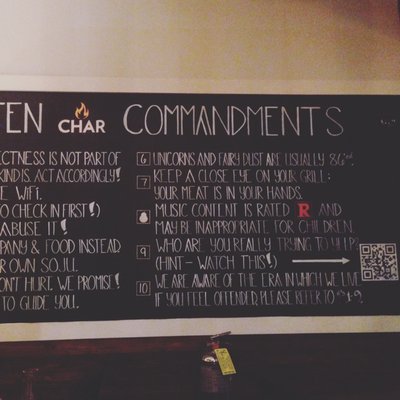 TEN CHAR COMMANDMENTS
ECTNESS IS NOT PART OF
KIND IS. ACT ACCORDINGLY!
E WIFI.
O CHECK IN FIRST!)
ABUSE IT!
PANY & FOOD INSTEAD
R OWN SOJU.
ON'T HURT. WE PROMISE!
TO GUIDE YOU.
6 UNICORNS AND FAIRY DUST ARE USUALLY 86'ed.
7 KEEP A CLOSE EYE ON YOUR GRILL;
YOUR MEAT IS IN YOUR HANDS.
MUSIC CONTENT IS RATED R AND
MAY BE INAPPROPRIATE FOR CHILDREN.
9 WHO ARE YOU REALLY TRYING TO YELP?
(HINT - WATCH THIS!)
10 WE ARE AWARE OF THE ERA IN WHICH WE LIVE.
IF YOU FEEL OFFENDED, PLEASE REFER TO #'s 1-9.